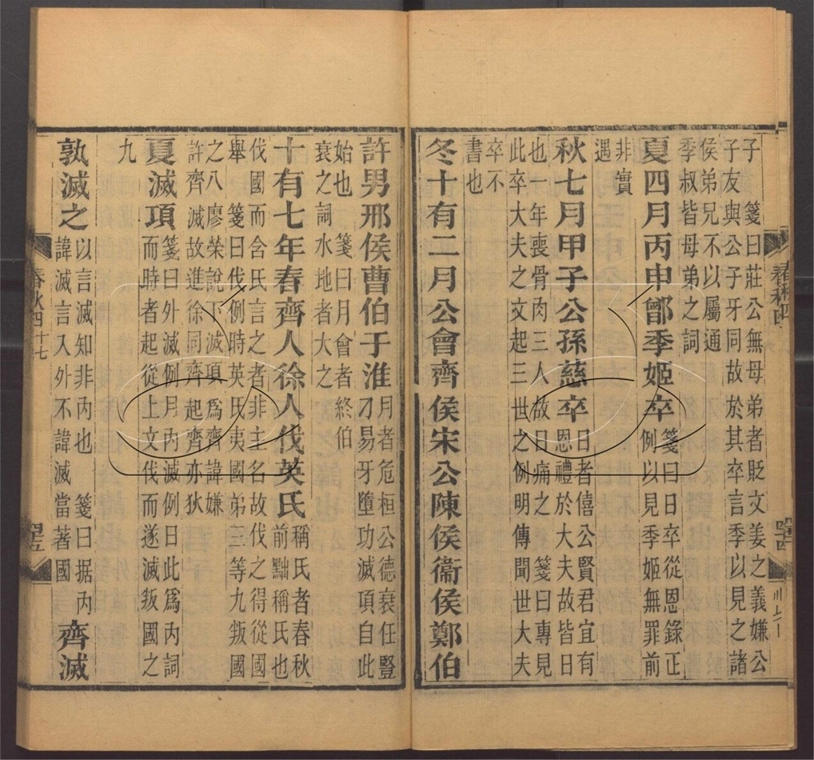 子　箋曰莊公無母弟者貶文姜之義嫌公
子友與公子牙同故於其卒言季以見之諸
侯弟兄不以屬通
季叔皆母弟之詞
夏四月丙申鄫季姬卒箋曰日卒從恩錄正
例以見季姬無罪前
遇
非實
秋七月甲子公孫慈卒日者僖公賢君宜有
恩禮於大夫故皆日
也一年喪骨肉三人故日痛之　箋曰專見
此卒大夫之文起三世之例明傳聞世大夫
卒不
書也
冬十有二月公會齊侯宋公陳侯衞侯鄭伯
許男邢侯曹伯于淮月者危桓公德衰任豎
刁易牙墮功滅項自此
始也　箋曰月會者終伯
衰之詞水地者大之
十有七年春齊人徐人伐英氏稱氏者春秋
前黜稱氏也
伐國而舍氏言之者非主名故伐之得從國
舉　箋曰伐例時英氏夷國弟三等九叛國
之八廖榮說下滅項爲齊諱嫌
許齊滅故進徐同齊起齊亦狄
夏滅項箋曰外滅例月內滅例日此爲內詞
而時者起從上文伐而遂滅叛國之
九
孰滅之以言滅知非內也　箋曰据內
諱滅言入外不諱滅當著國
齊滅
春秋四
十七